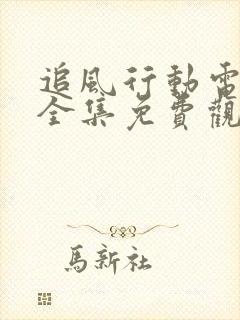 追風行動電
全集免費觀
馬新社